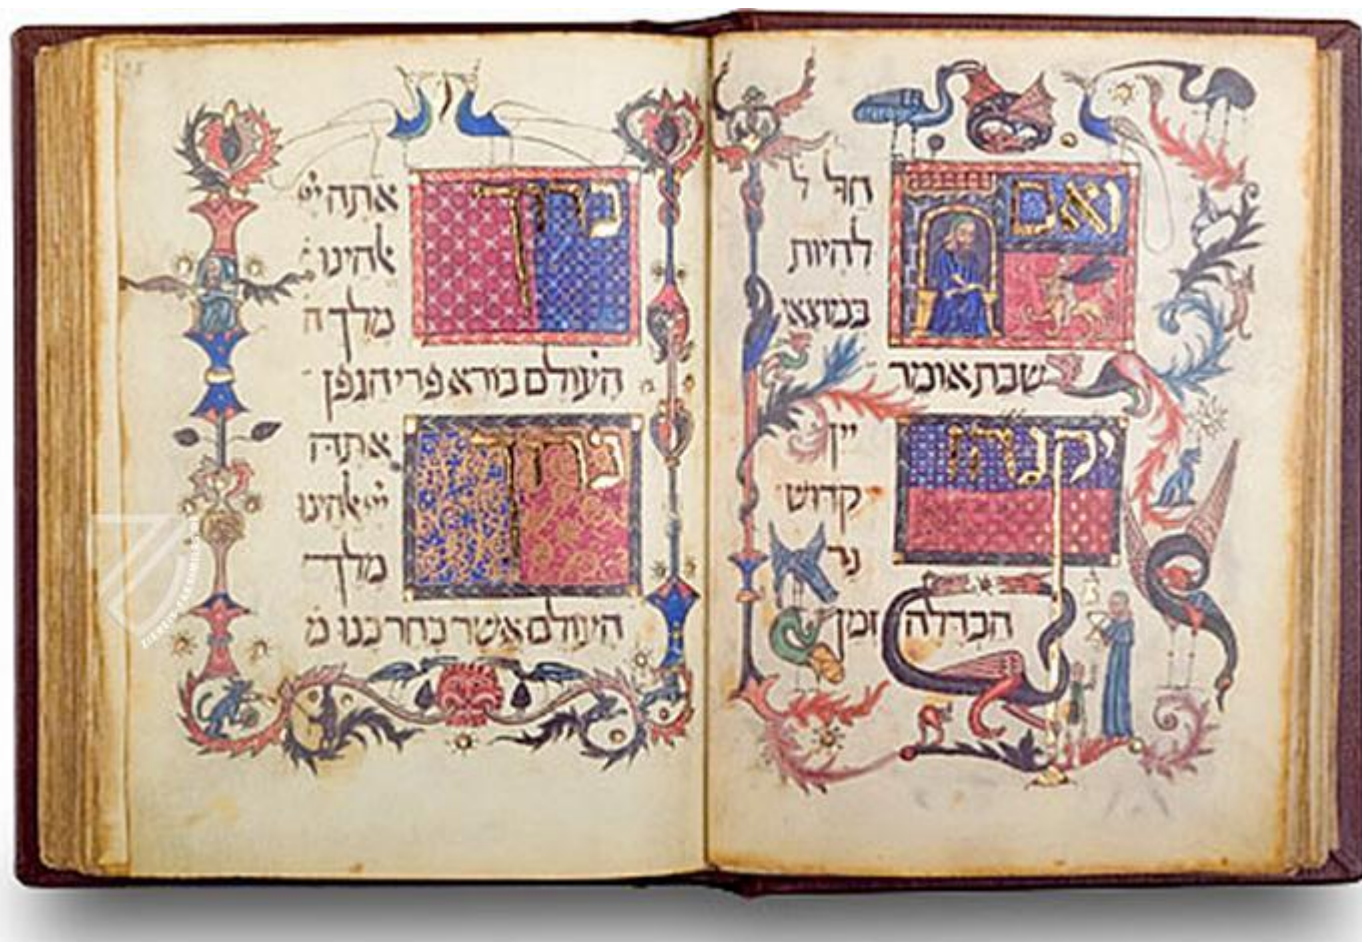 ואם חל ל
להיות
במוצאי
שבת אומר
יקנהז יין
קדוש
נר
הבדלה זמן
ברוך אתה יי
אלהינו
מלך ה
העולם בורא פרי הגפן
ברוך אתה
יי אלהינו
מלך
העולם אשר בחר בנו מ